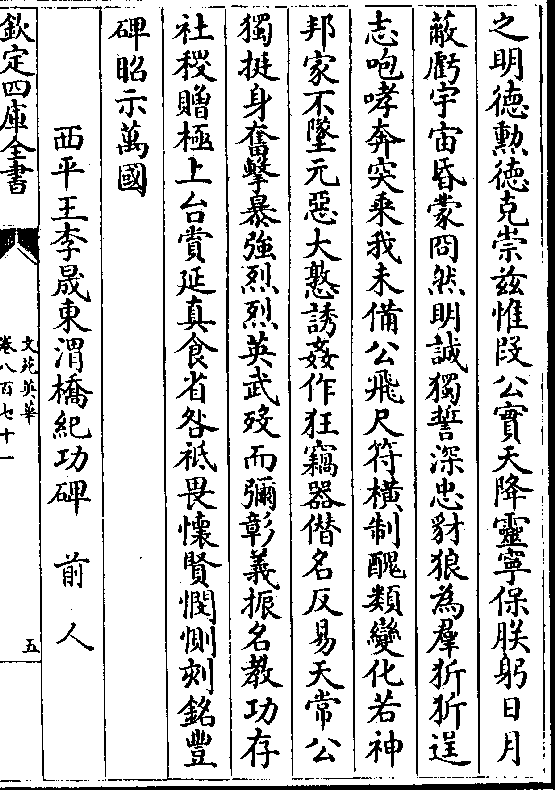 之明德勲德克崇兹惟叚公實天降靈寧保朕躬日月
蔽虧宇宙昏蒙冏然明誠獨誓深忠豺狼為羣狾狾逞
志咆哮奔突乘我未備公飛尺符横制醜類變化若神
邦家不墜元惡大憝誘姦作狂竊器僣名反易天常公
獨挺身奮擊暴強烈烈英武歿而彌彰義振名教功存
社稷贈極上台賞延真食省咎祗畏懷賢憫惻刻銘豐
碑昭示萬國
西平王李晟東渭橋紀功碑 前人
欽定四庫全書
文苑英華
卷八百七十一
五